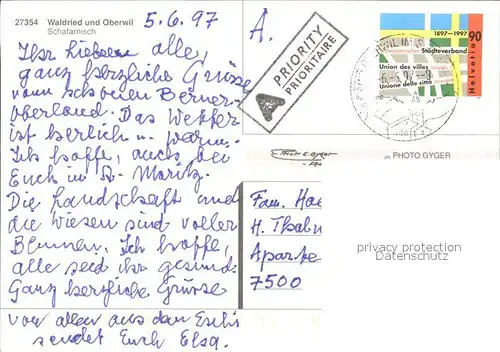 27354 Waldried und Oberwil
Schafarnisch
5.6.97
Ihr lieben alle,
ganz herzliche Grüsse
vom schoenen Berner-
oberland. Das Wetter
ist herlich u. warm.
Ich hoffe, auch bei
Euch in St. Moritz.
Die Landschaft und
die Wiesen sind voller
Blumen. Ich hoffe,
alle seid ihr gesund.
Ganz herzliche Grüsse
von allen aus dan Eschi
sendet Euch Elsa.
A.
PRIORITY
PRIORITAIRE
A
1897-1997 90
Schweizerischer Städteverband
Union des villes
Unione delle città
PHOTO GYGER
privacy protection
Datenschutz
Fam.
H.
7500